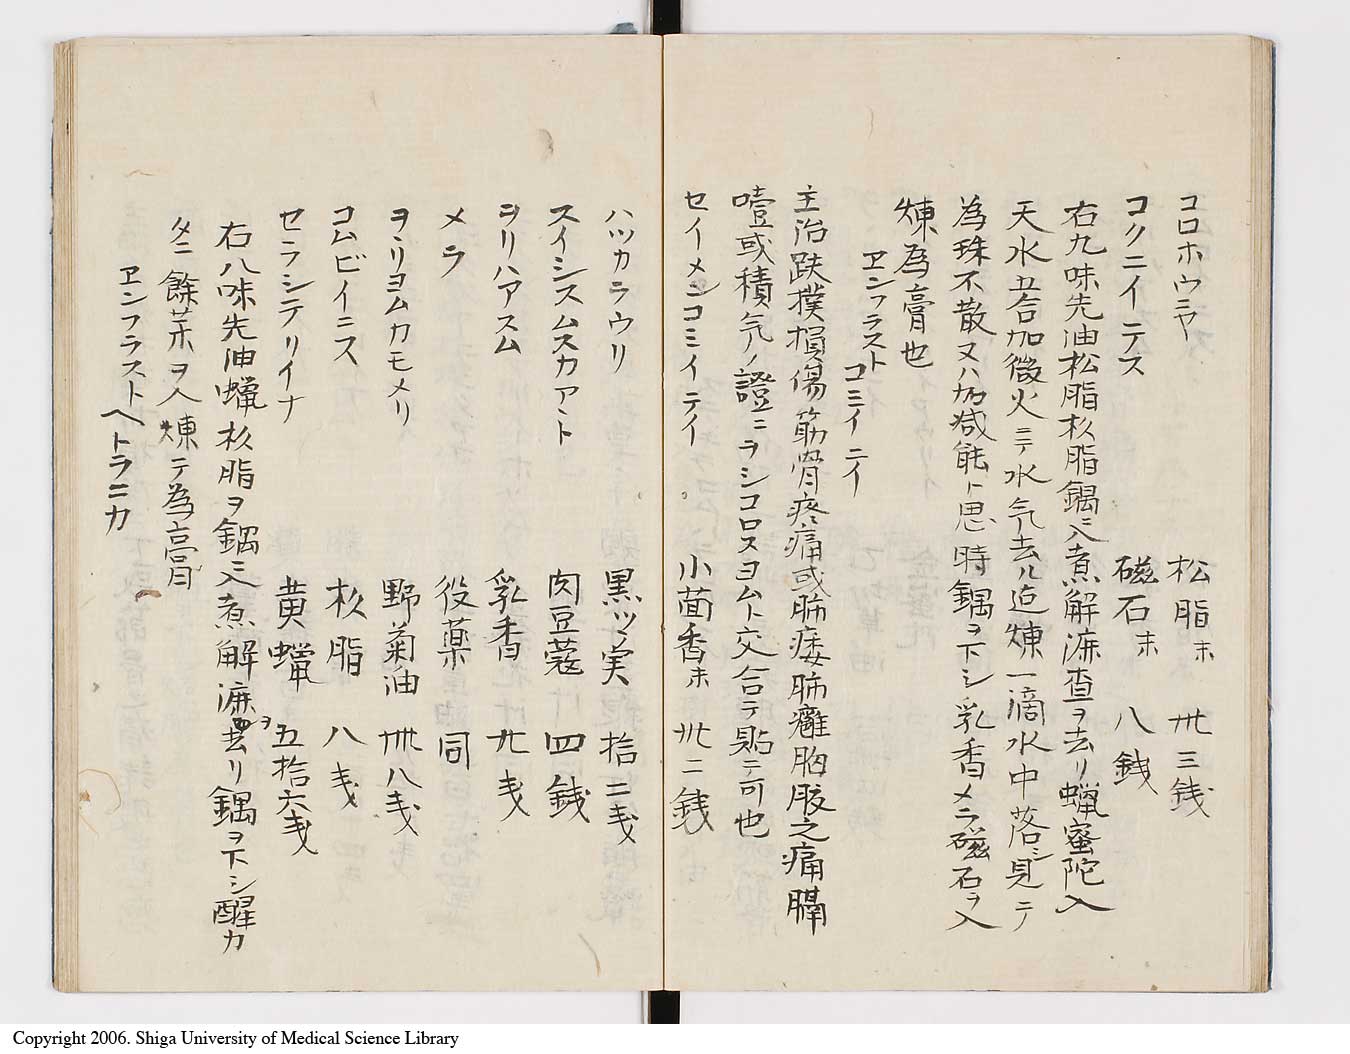 コロホウニヤ 松脂末 卅三銭
コクニイテス 磁石末 八銭
右九味先油松脂杉脂鍋ニ入煮解漉査ヲ去リ蠟蜜陀入
天水五合加微火ニテ水気去ル迄煉一滴水中落シ見テ
為珠不散又ハ加減能ト思時鍋ヲ下シ乳香メラ磁石ヲ入
煉為膏也
ヱンフラスト コミイニイ
主治跌撲損傷筋骨疼痛或肺痿肺癰胸腹之痛膈
噎或積気ノ證ニヲシコロスヨムト交合テ貼テ可也
セイーメンコミイテイ 小茴香末 卅二銭
ハツカラウリ 黒ツヽ実 拾二戔
スイシスムスカアヽト 肉豆蔲 四銭
ヲリハアスム 乳香 九戔
メラ 役薬 同
ヲヽリヨムカモメリ 野菊油 卅八戔
コムビイニス 杉脂 八戔
セラシテリイナ 黄蠟 五拾六戔
右八味先油蠟杉脂ヲ鍋ニ入煮解漉シヲ去リ鍋ヲ下シ醒カ
タニ餘薬ヲ入煉テ為膏
ヱンフラストヘトラニカ
Copyright 2006. Shiga University of Medical Science Library